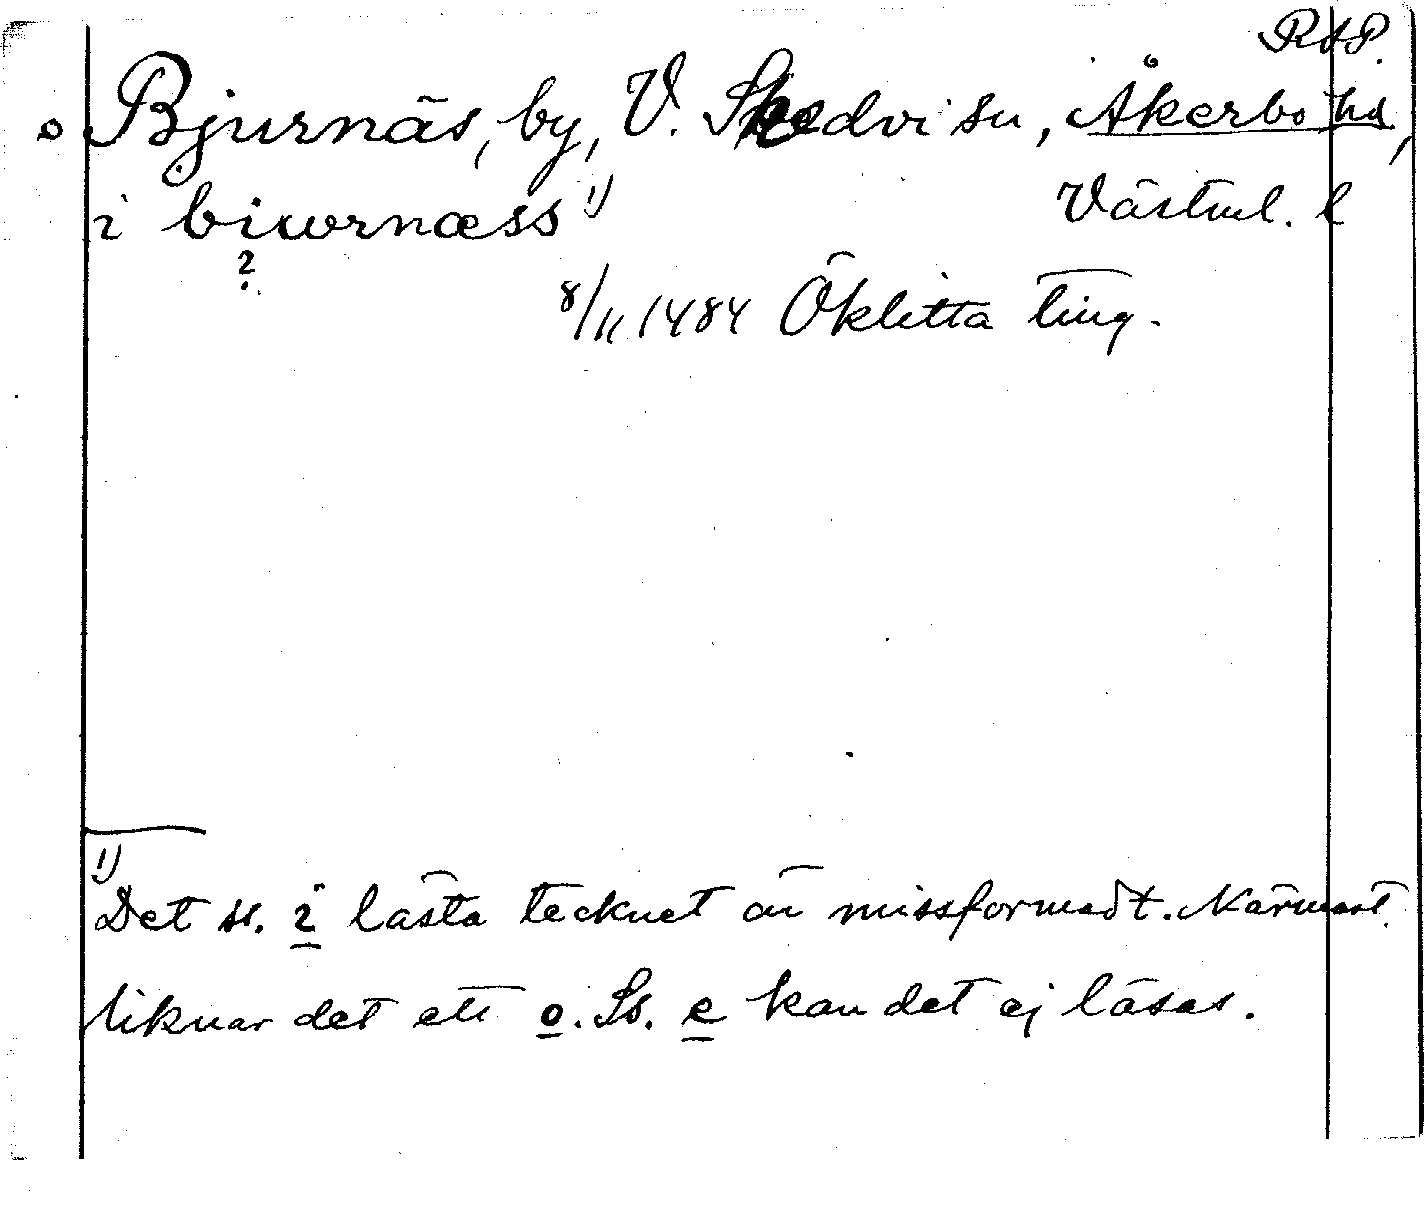 RAP.
Bjurnäs, by, V. Skedvi sn, Åkerbo hd,
i biwrnæss 1) Västml. l
?
8/11 1484 Öklitta ting.
1)
Det ss. i lästa tecknet är missformadt. Närmast
liknar det ett o. Ss. e kan det ej läsas.